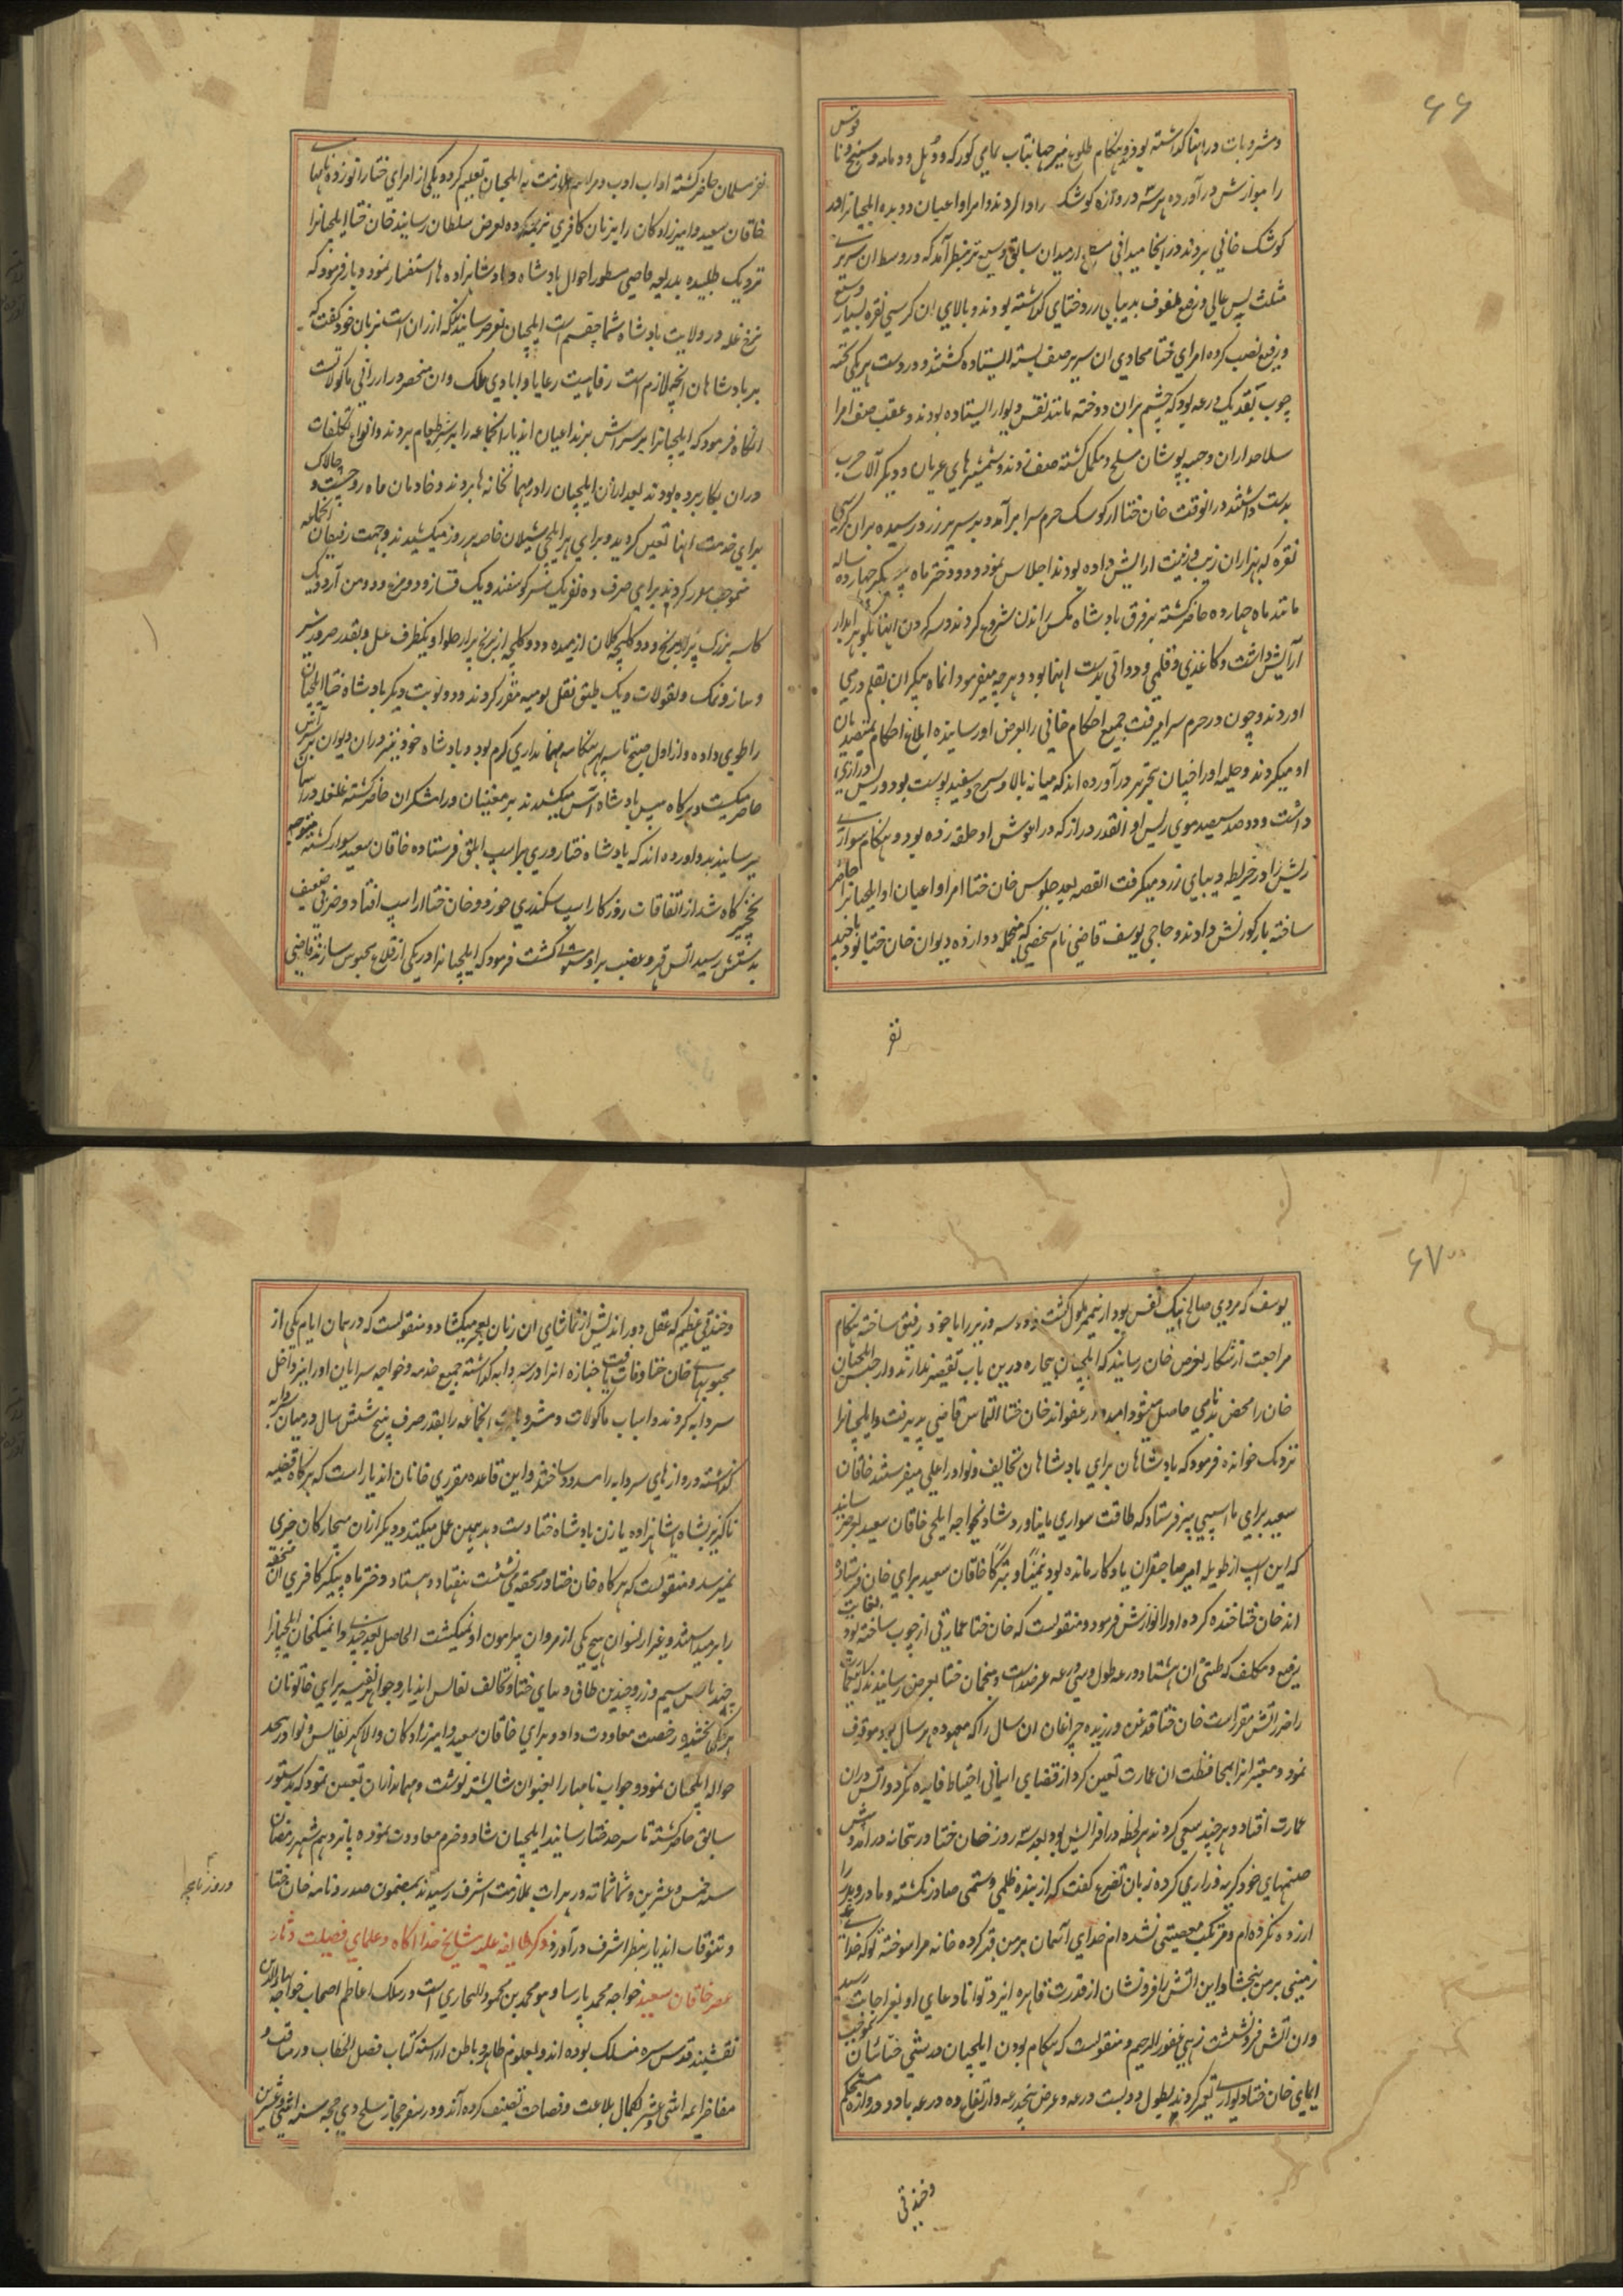 ۶۶
ومشروبات در اینها گذاشته بود و هنگام طلوع نیر جهانتاب تمامی کورکه و دهل و دمامه و سنج و نا
قوس
را بنوازش درآورده هر سه دروازه کوشک را وا کردند و امرا و اعیان دویده ایلچیانرا در
کوشک خانی بردند در انجا میدانی از میدان سابق وسیع تر بنظر آمد که در وسط ان سریری
مثلث پس عالی و رفیع ملفوف بدیبای زرد ختای گذاشته بودند و بالای ان کرسی نقره بسیار وسیع
و رفیع نصب کرده امرای ختا محاذی ان سریر صف بسته ایستاده گشتند و در دست هر یکی تخته
چوب بقدر یک ذرعه بود که چشم بران دوخته مانند نقش دیوار ایستاده بودند و عقب صف امرا
سلاحداران و جیبه پوشان مسلح و مکمل گشته صف زدند و شمشیرهای عریان و دیگر آلات حرب
بدست داشتند در انوقت خان ختا از کوشک حرم سرا برآمد و بر سریر زر رسیده بران کرسی
نقره که بهزاران زیب و زینت ارایش داده بودند اجلاس نمود و دو دختر ماه پیکر چهارده ساله
مانند ماه چهارده حاضر گشته بر فرق بادشاه مگس راندن شروع کردند و سر گردن اینها بگوهر ابدار
آرایش داشت و کاغذی و قلمی و دواتی بدست اینها بود و هرچه میفرمود انماه پیکران بقلم در می
اوردند و چون در حرم سرا میرفت جمیع احکام خانی را بعرض او رسانیده ابلاغ احکام بمتصدیان
او میکردند و حلیه او را چنان بتحریر درآورده اند که میانه بالا و سرخ و سفید پوست بود و ریش درازی
داشت و دوصد سیصد موی ریش او انقدر دراز که در اغوش او حلقه زده بود و هنگام سواری
ریش را در خریطه دیبای زرد میگرفت القصه بعد جلوس خان ختا امرا و اعیان او ایلچیانرا حاضر
ساخته بار کورنش دادند و حاجی یوسف قاضی نام شخصی که منجمله دوازده دیوان خان ختا بود با چند
نفر
نفر مسلمان حاضر گشته اداب ادب و مراسم ملازمت به ایلچیان تعلیم کرد و یکی از امرای ختا زانو زده نامهای
خاقان سعید و امیرزادگان را بزبان کافری ترجمه کرده بعرض سلطان رسانید خان ختا ایلچیانرا
نزدیک طلبیده بذریعه قاضی مسطور احوال بادشاه و بادشاهزاده ها استفسار نمود و باز فرمود که
نرخ غله در ولایت بادشاه شما چقسم است ایلچیان بعرض رسانیدند که ارزان است بزبان خود گفت که
بر بادشاهان انچه لازم است رفاهیت رعایا و ابادی ملک و ان منحصر در ارزانی ماکولات
انگاه فرمود که ایلچیانرا بر سر اش برند اعیان اندیار انجماعه را بر سر طعام بردند و انواع تکلفات
دران بکار برده بودند بعد ازان ایلچیان را در مهمانخانه ها بردند و خادمان ماه رو چست و چالاک
برای خدمت اینها تعین گردید و برای هر ایلچی شیلان خاصه هر روز میکشیدند و جهت رفیقان انجماعه
بموجب مقرر کردند برای صرف ده نفر یک سر گوسفند و یک قاز و دو مرغ و دو من آرد و یک
کاسه بزرگ پر از برنج و دو کلیچه کلان از میده و دو کلیچه از برنج پر از حلوا و یکظرف عسل و بقدر ضرور سیر
و پیاز و نمک و بقولات و یک طبق نقل یومیه مقرر کردند و دو نوبت دیگر بادشاه ختا ایلچیان
را طوی داده و از اول صبح تا سه پهر هنگامه مهمانداری گرم بود و بادشاه خود نیز دران دیوان بر سر اش
حاضر میگشت و هرگاه پیش بادشاه اش میکشیدند بر مغنیان و رامشگران حاضر گشته غلغله در اسمان
میرسانیدند و اورده اند که بادشاه ختا روزی بر اسب ابلق فرستاده خاقان سعید سوار گشته متوجه
نخچیرگاه شد از اتفاقات روزگار اسب سکندری خورد و خان ختا از اسپ افتاد و ضرب ضعیف
بدستش رسید اتش قهر و غضب بر او مستولی گشت فرمود که ایلچیانرا در یکی از قلاع محبوس سازند قاضی
۶۷
یوسف که مردی صالح نیک نفس بود ازینمعنی ملول گشت و دو سه وزیر را با خود رفیق ساخته هنگام
مراجعت از شکار بعرض خان رسانید که ایلچیان بیچاره درین باب تقصیر ندارند و از حبس ایلچیان
خان را محض بدنامی حاصل میشود امیدوار عفو اند خان ختا التماس قاضی پذیرفت و ایلچیانرا
نزدیک خوانده فرمود که بادشاهان برای بادشاهان تحایف و نوادر اعلی میفرستند خاقان
سعید برای ما اسپی پیر فرستاد که طاقت سواری ما نیاورد شادیخواجه ایلچی خاقان سعید بعرض رسانید
که این اسپ از طویله امیر صاحبقران یادگار مانده بود تیمنا و تبرکا خاقان سعید برای خان فرستاده
اند خان ختا خنده کرده او را نوازش فرمود و منقولست که خان ختا عمارتی از چوب ساخته بود بغایت
رفیع و متکلف که طنبی ان هشتاد ذرعه طول و سی ذرعه عرض داشت و منجمان ختا بعرض رسانیدند که ان عمارت
را ضرر آتش مقرر است خان ختا قدغن ورزیده چراغان ان سال را که معهوده هر سال بود موقوف
نمود و معتبرانرا بمحافظت ان عمارت تعین کرد از قضای اسمانی احتیاط فایده نکرد و اتش دران
عمارت افتاد و هرچند سعی کردند هر لحظه در افزایش بود بعد سه روز خان ختا در بتخانه درامد و پیش
صنمهای خود گریه و زاری کرده بزبان تضرع گفت که از بنده ظلمی و ستمی صادر نگشته و مادر و پدر را
ازرده نکرده ام و مرتکب معصیتی نشده ام خدای آسمان بر من قهر کرده خانه مرا سوخته تو که خدای
زمینی بر من ببخشا و این اتش را فرو نشان از قدرت قاهره ایزد توانا دعای او بعز اجابت رسید
و ان اتش فرو نشست زهی غفور الرحیم و منقولست که هنگام بودن ایلچیان در ختای بموجب
ایمای خان ختا دیواری تعمیر کردند بطول دویست ذرعه و عرض پنج ذرعه و ارتفاع ده ذرعه با دو دروازه مستحکم
وخندقی
وخندقی عظیم که عقل دوراندیش از تماشای ان زبان بعجز میکشاد و منقولست که در همان ایام یکی از
محبوبهای خان ختا وفات یافت جنازه انرا در سردابه گذاشته جمیع خدمه و خواجه سرایان او را نیز داخل
سردابه کردند و اسباب ماکولات و مشروبات انجماعه را بقدر صرف پنج شش سال در میان سردابه
گذاشته دروازهای سردابه را مسدود ساختند و این قاعده مقرری خانان اندیار است که هرگاه قضیه
ناگزیر بشاه و شاهزاده یا زن بادشاه ختا دست دهد همین عمل میکنند و دیگر ازان بیچارگان خبری
نمیرسد و منقولست که هرگاه خان ختا در محفه می نشست هفتاد و هشتاد دختر ماه پیکر کافری ان محفه
را بر میداشتند و غیر از نسوان هیچ یکی از مردان پیرامون او نمیگشت الحاصل بعد چندی دائمینگخان ایلچیانرا
چند بالش سیم و زر و چندین طاق دیبای ختا و تحایف نفایس اندیار و جواهر نفیسه برای خاتونان
هر یکی بخشیده رخصت معاودت داد و برای خاقان سعید و امیرزادگان والا گهر نفایس و نوادر بیحد
حواله ایلچیان نمود و جواب نامها را بعنوان شایسته نوشت و مهمانداران تعین نمود که بدستور
سابق حاضر گشته تا سرحد ختا رسانید ایلچیان شاد و خرم معاودت نموده پانزدهم شهر رمضان
سنه خمس و عشرین و ثمانمائه در هرات بملازمت اشرف رسیدند بمضمون صدر و نامه خان ختا
و تنوقات اندیار بنظر اشرف درآورد وذکر طایفه علیه مشایخ خدا اگاه و علمای فضیلت دثار
عصر خاقان سعید خواجه محمد پارسا و هو محمد بن محمود البخاری است در سلک اعاظم اصحاب خواجه بهاوالدین
نقشبند قدس سره منسلک بوده اند و بعلوم ظاهر و باطن اراسته کتاب فصل الخطاب در مناقب و
مفاخر ایمه اثنی عشر بکمال بلاغت و فصاحت تصنیف کرده آند و در سفر حجاز سلخ ذی حجه سنه اثنی و عشرین